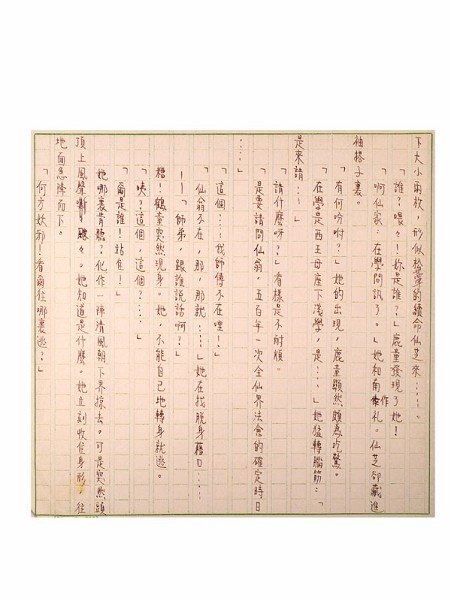 下大小兩枚，形似松蕈的續命仙芝來‥‥。
「誰？喂！妳是誰？」鹿童發現了她！
「啊仙家，在學問訊了。」她和南作禮。仙芝卻藏進
袖搭子裏。
「有何吩咐？」她的出現，鹿童顯然頗為吃驚。
「在學是西王母座下淺學，是‥‥」她猛轉腦筋：「
是來請‥‥」
「請什麼呀？」看樣是不耐煩。
「是要請問仙翁，五百年一次全仙界法會的確定時日
‥‥」
「這個？‥‥我師傅不在哩！」
「仙翁不在，那，那就‥‥」她在找脫身藉口‥‥
——「師弟，跟誰說話啊？」
糟！鶴童突然現身。她，不能自已地轉身就逃。
「咦？這個，這個？‥‥」
「爾是誰！站住！」
她哪裏肯聽？化作一陣清風朝下界掠去。可是突然頭
頂上風聲颼々。她知道是什麼。她立刻收住身形，往
地面急降而下。
「何方妖邪！看爾往哪裏逃？」